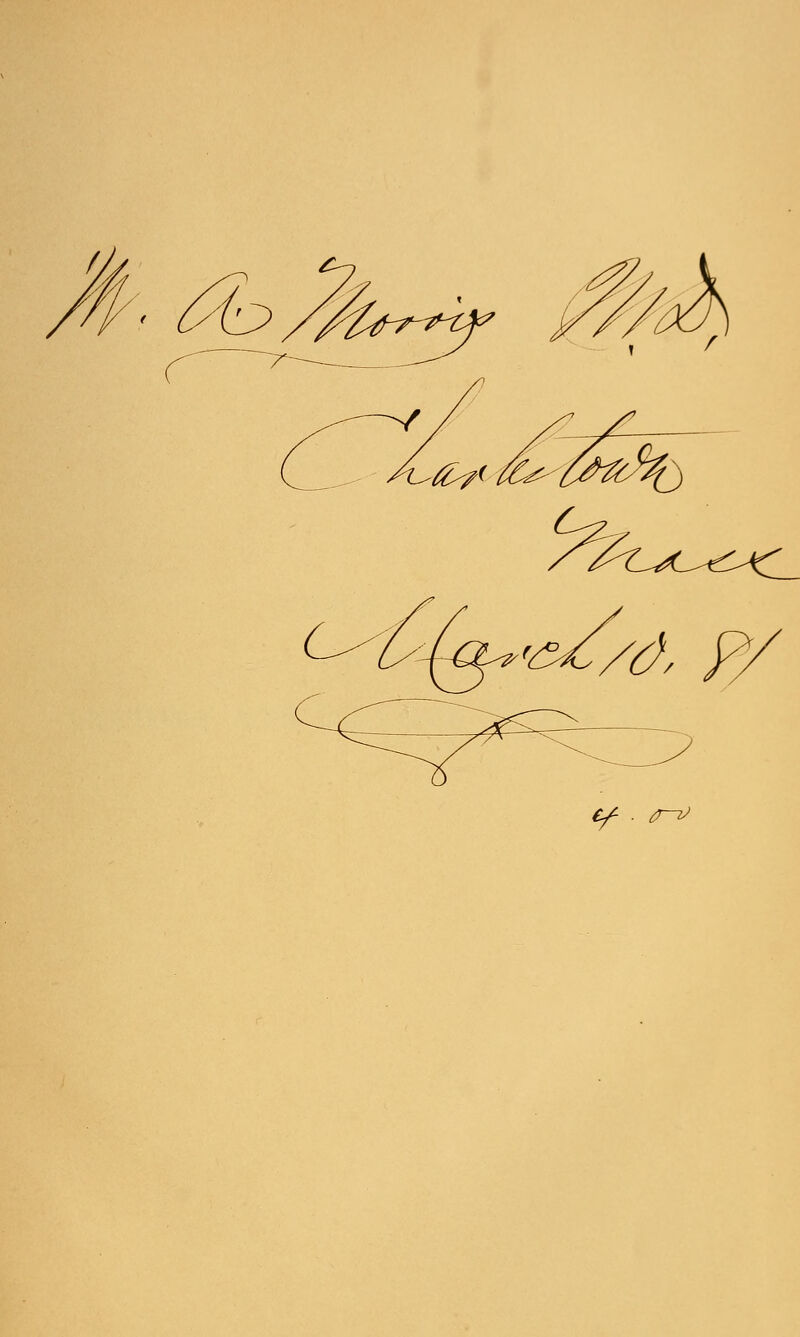 M. A. Morris M.D,
Charlestown
Mass
March 10, 81